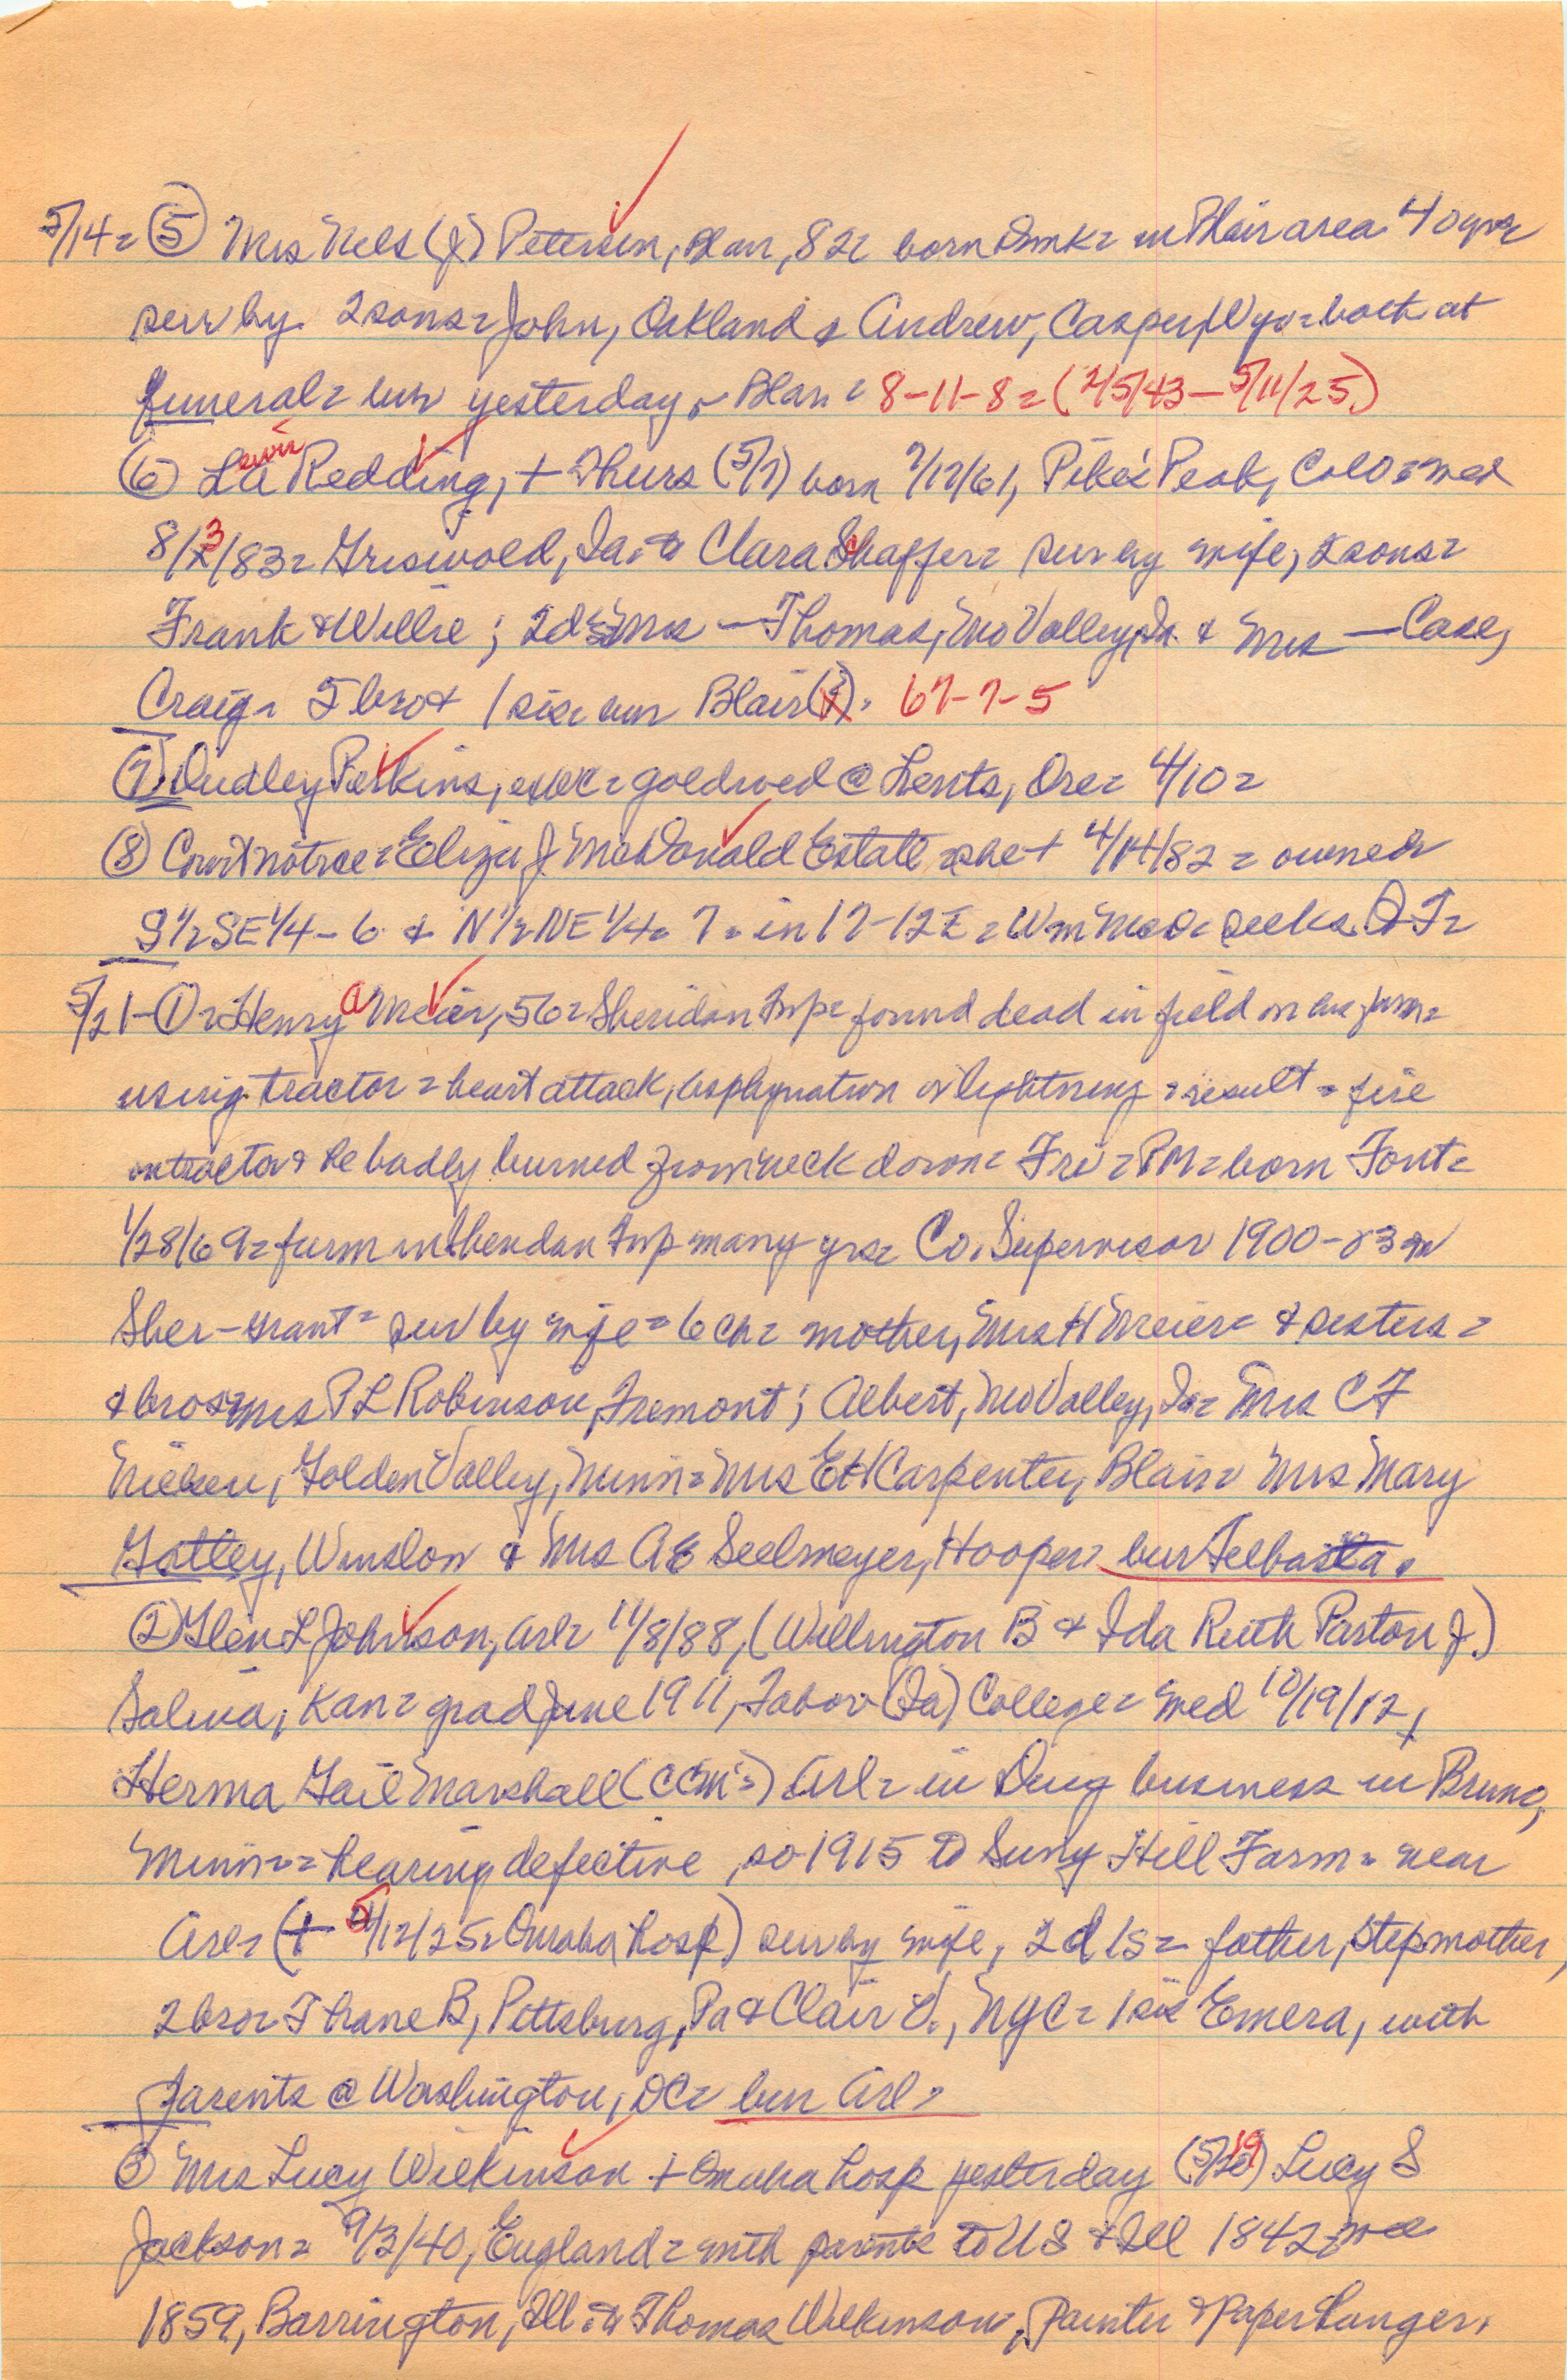 5/14= (5) Mrs Nels (J) Petersen, Blair, 82= born Dnmk= in Blair area 40 yrs=
surv by 2 sons= John, Oakland & Andrew, Casper, Wyo= both at
funeral= bur yesterday, Blair= 8-11-8= (2/5/43 — 5/11/25)
(6) Lewis Redding, + Thurs (5/7) born 7/12/61, Pike's Peak, Colo= med
8/3/83= Griswold, Ia. to Clara Shaffer= surv by wife, 2 sons=
Frank & Willie; 2d= Mrs — Thomas, Mo Valley, Ia. & Mrs — Case,
Craig= 5 bro & 1 sis= bur Blair (?). 67-7-5
(7) Dudley Perkins, = gold wed @ Lents, Ore= 4/10=
(8) Court notice= Eliza J. McDonald Estate = she + 4/14/82 = owned
S 1/2 SE 1/4 - 6 & N 1/2 NE 1/4= 7= in 17-12E = Wm McD= seeks QT=
5/21-(1)= Henry a Meier, 56= Sheridan Twp= found dead in field on his farm=
using tractor = heart attack, asphyxiation or lightning = result = fire
on tractor & he badly burned from neck down= Fri= PM= born Font=
1/28/69= farm in Sheridan Twp many yrs= Co. Supervisor 1900-03
Sher-Grant= surv by wife = 6 ch= mother, Mrs H Meier= & sisters=
& bros= Mrs P L Robinson, Fremont; Albert, Mo Valley, Ia= Mrs C F
Nielsen, Golden Valley, Minn= Mrs E H Carpenter, Blair= Mrs Mary
Gatley, Winslow & Mrs A E Seelmeyer, Hooper= bur Telbasta.
(2) Glen L Johnson, Arl= 11/8/88, (Wellington B & Ida Ruth Paxton J.)
Salina, Kan= grad June 1911, Tabor (Ia) College= med 10/19/12,
Herma Gail Marshall (C C M's) Arl= in Drug business in Bruno,
Minn== hearing defective, so 1915 to Suny Hill Farm= near
Arl= (+ 5/12/25= Omaha hosp) surv by wife, 2d 1s= father, stepmother,
2 bro= Thane B, Pittsburg, Pa & Clair V., NYC= 1 sis Emera, with
parents @ Washington, DC= bur Arl=
(3) Mrs Lucy Wilkinson + Omaha hosp yesterday (5/19) Lucy S
Jackson= 9/3/40, England= with parents to US & Ill 1842= med
1859, Barrington, Ill. to Thomas Wilkinson, painter & paper hanger.